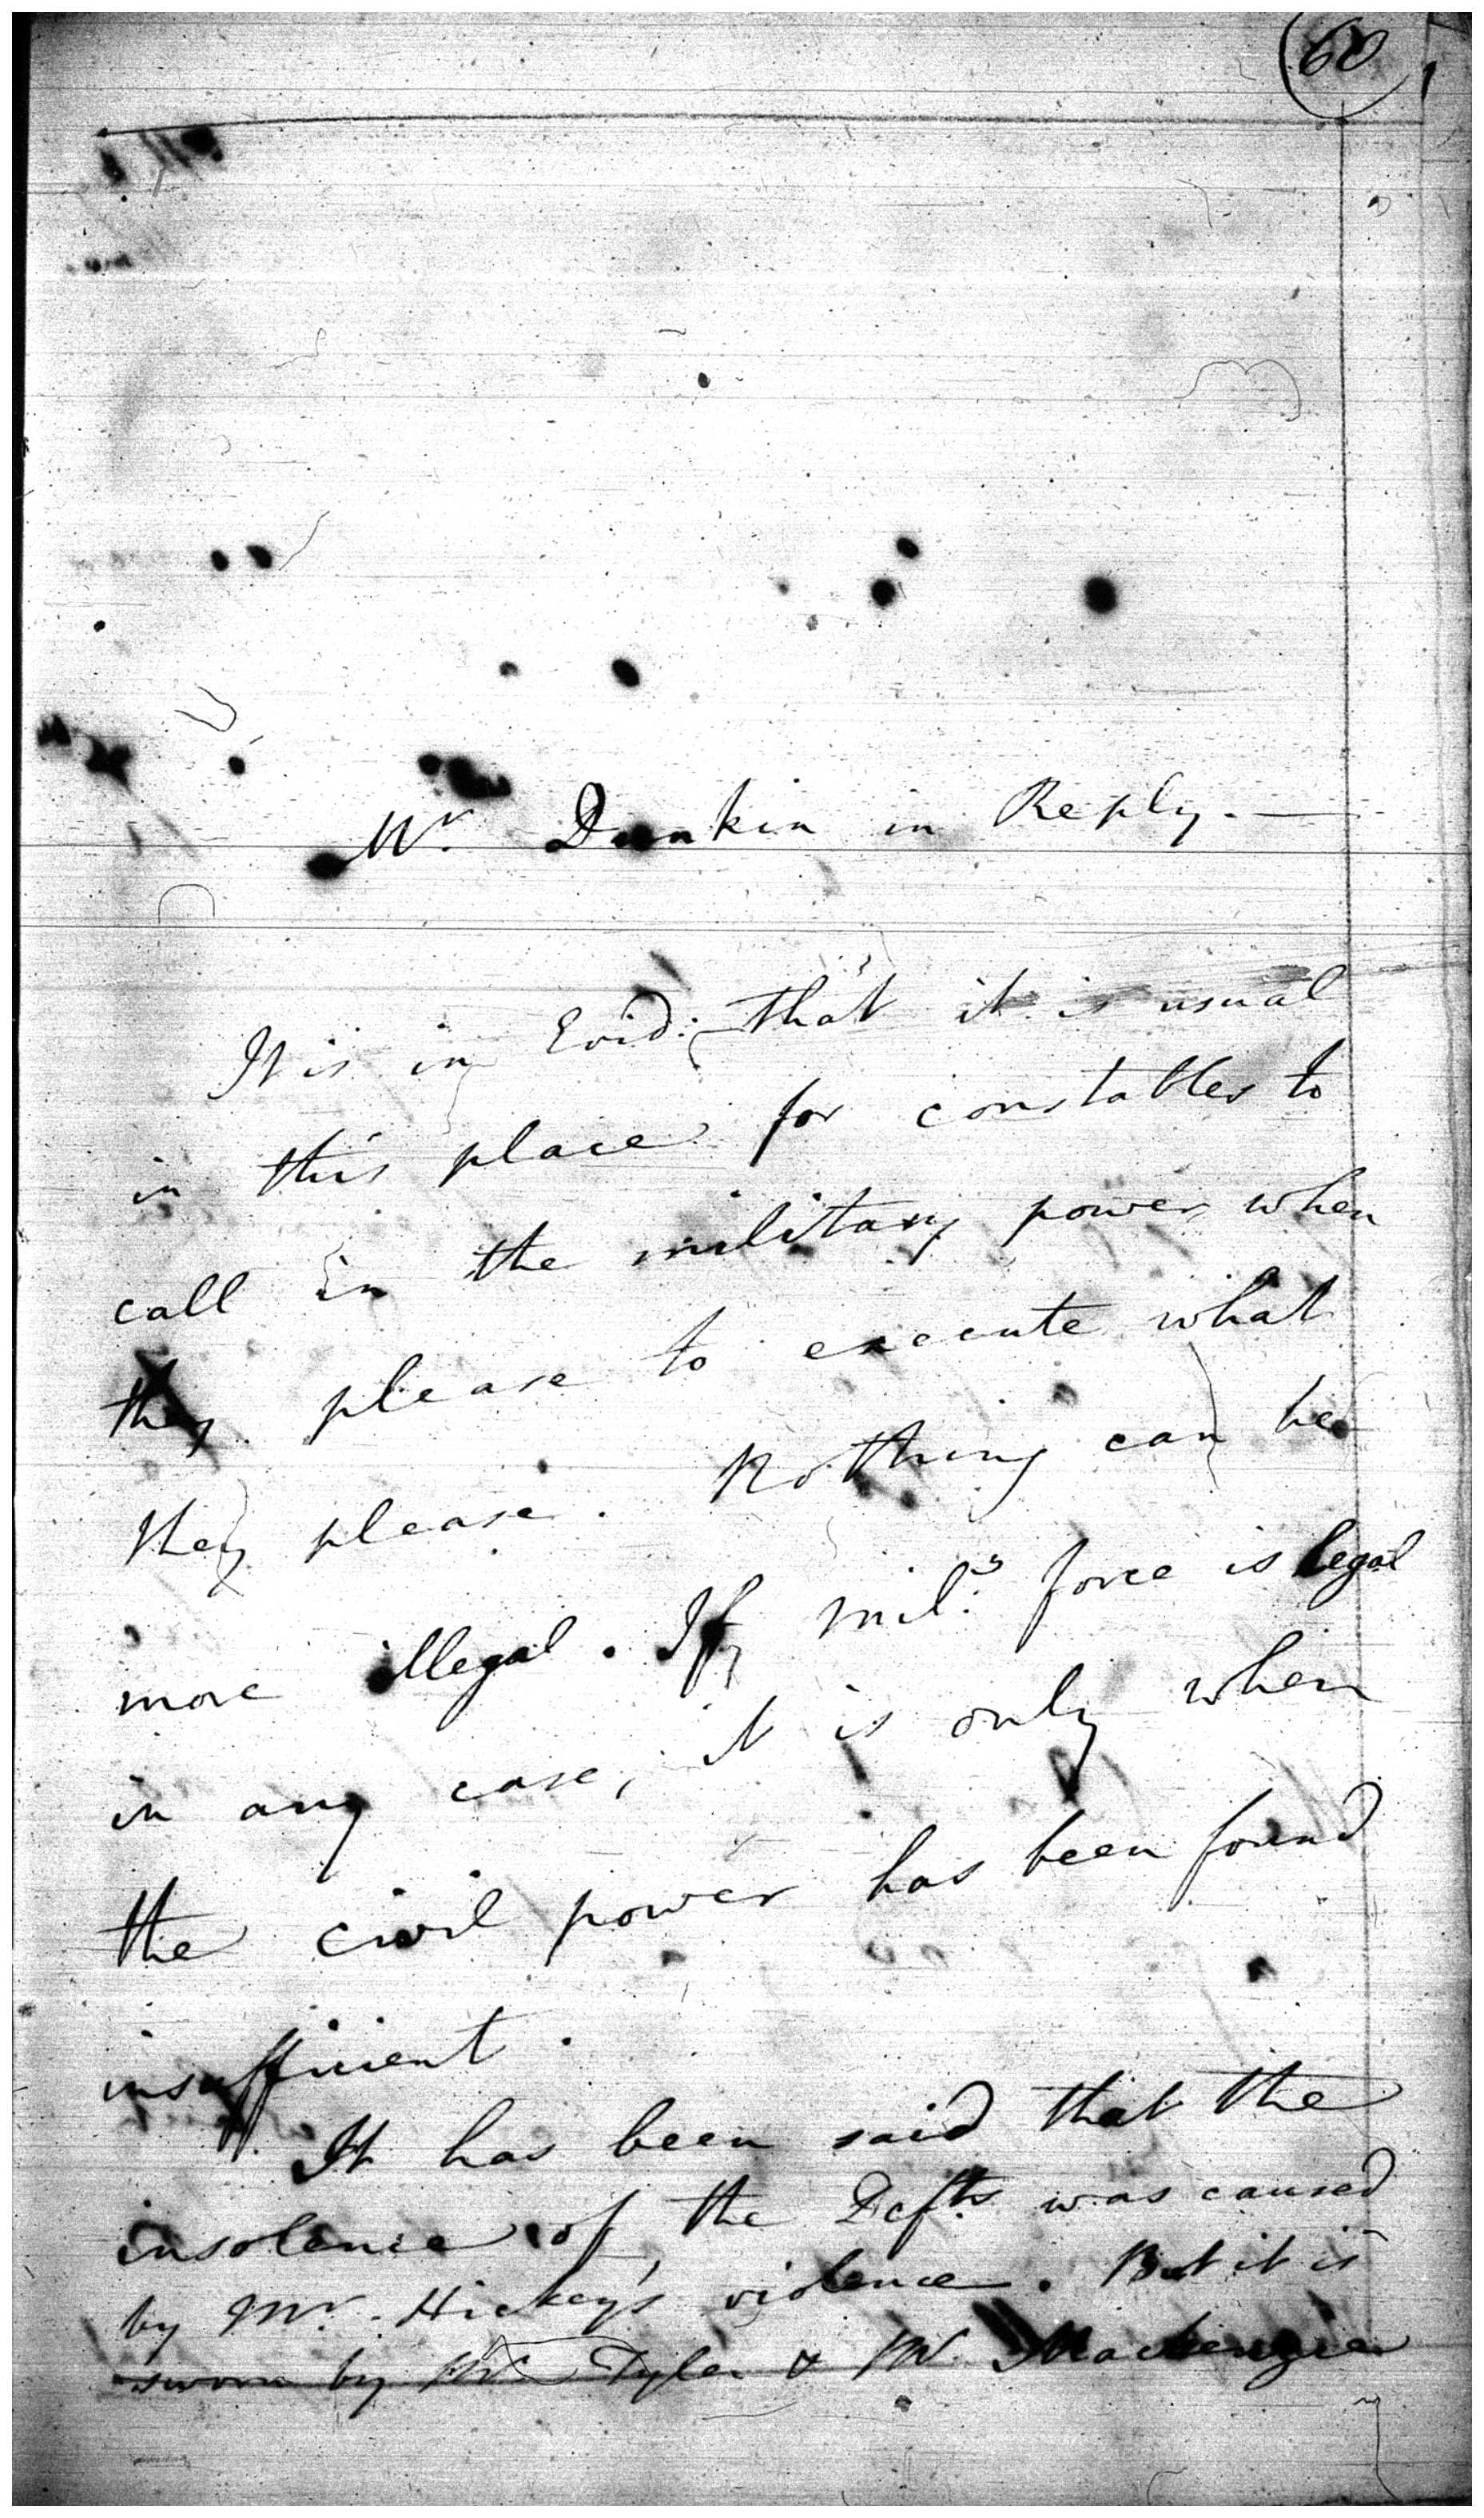 60
Mr. Dunkin in Reply. —
It is in Evid: that it is usual
in this place for constables to
call in the military power when
they please to execute what
they please. Nothing can be
more illegal. If mily force is legal
in any case, it is only when
the civil power has been found
insufficient.
It has been said that the
insolence of the Defts was caused
by Mr. Hickey's violence. But it is
sworn by Mr Tyler & Mr. Mackenzie